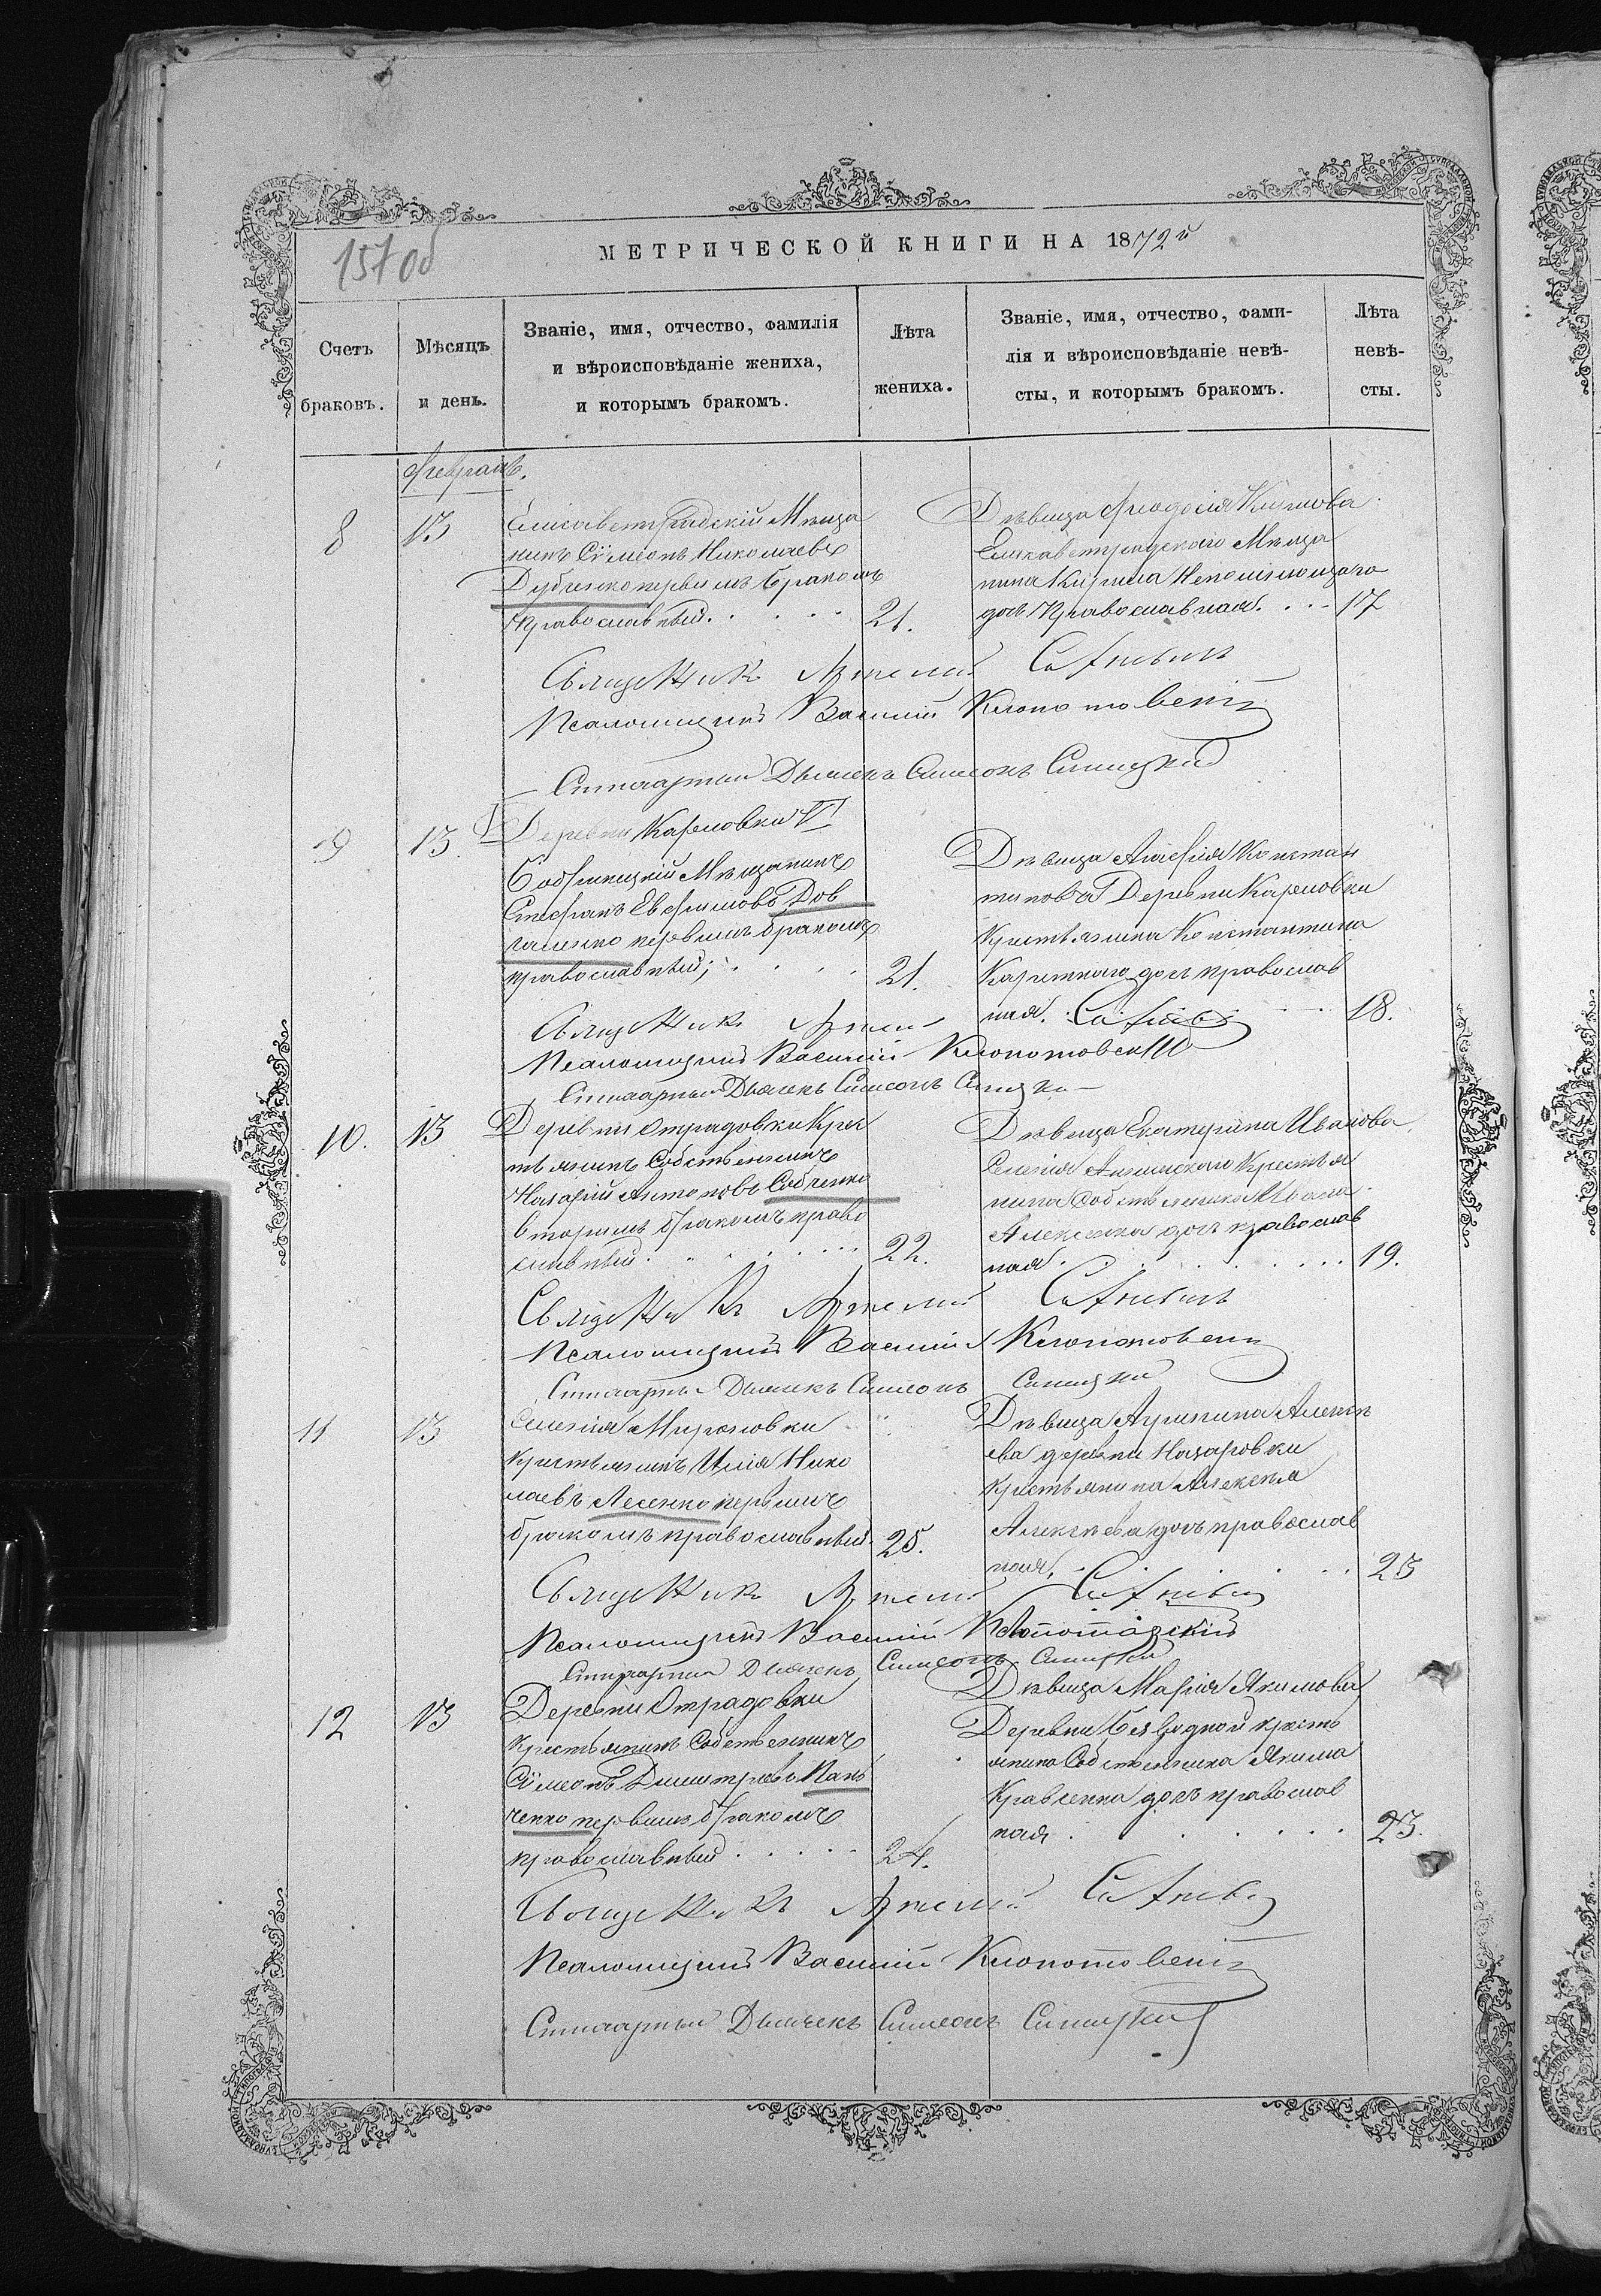 157 об
МЕТРИЧЕСКОЙ КНИГИ НА 1872й
Счетъ браковъ.
Мѣсяцъ и день.
Званіе, имя, отчество, фамилія
и вѣроисповѣданіе жениха,
и которымъ бракомъ.
Лѣта
жениха.
Званіе, имя, отчество, фами-
лія и вѣроисповѣданіе невѣ-
сты, и которымъ бракомъ.
Лѣта
невѣ-
сты.
Февраль.
8
13
Елисаветградскій Мѣща
нинъ Сѵмеонъ Николаевъ
Дубченко первымъ бракомъ
православный.
21.
Дѣвица Феодосія Кирилова
Елисаветградскаго Мѣща
нина Кирила Непомнющаго
дочь православная.
17
Священникъ Артемій
Псаломщикъ Василій Клопотовскій
Дьячекъ Симеонъ Синицкій
9
13.
Деревни Карловки
Бобринецкій Мѣщанинъ
Стефанъ Евфимовъ Дов
галенко первымъ бракомъ
православный;
21.
Дѣвица Агафія Констан
тинова Деревни Карловки
Крестьянина Константина
дочь православ
ная.
18.
Священникъ Артемій
Псаломщикъ Василій Клопотовскій
Дьячекъ Симеонъ Синицкій
10.
13
Деревни Отрадовки Крес
тьянинъ Собственникъ
Назарій Антоновъ Собченко
вторымъ бракомъ право
славный.
22.
Дѣвица Екатерина Иванова
Селенія Аннинскаго Крестья
нина Собственника Ивана
дочь православ
ная.
19.
Священникъ Артемій
Псаломщикъ Василій Клопотовскій
Дьячекъ Симеонъ Синицкій
11
13
Селенія Мироновки
Крестьянинъ Илія Нико
лаевъ Лесенко первымъ
бракомъ православный.
25.
Дѣвица Агрипина Алексѣ
ева деревни Назаровки
Крестьянина Алексѣя
Алексѣева дочь православ
ная.
23
Священникъ Артемій
Псаломщикъ Василій Клопотовскій
Дьячекъ Симеонъ Синицкій
12
13
Деревни Отрадовки
Крестьянинъ Собственникъ
Сѵмеонъ Димитріевъ Пан
ченко первымъ бракомъ
православный
24.
Дѣвица Марія Якимова
Деревни Безводной кресть
янина Собственника Якима
Кравченка дочь православ
ная.
23.
Священникъ Артемій
Псаломщикъ Василій Клопотовскій
Дьячекъ Симеонъ Синицкій